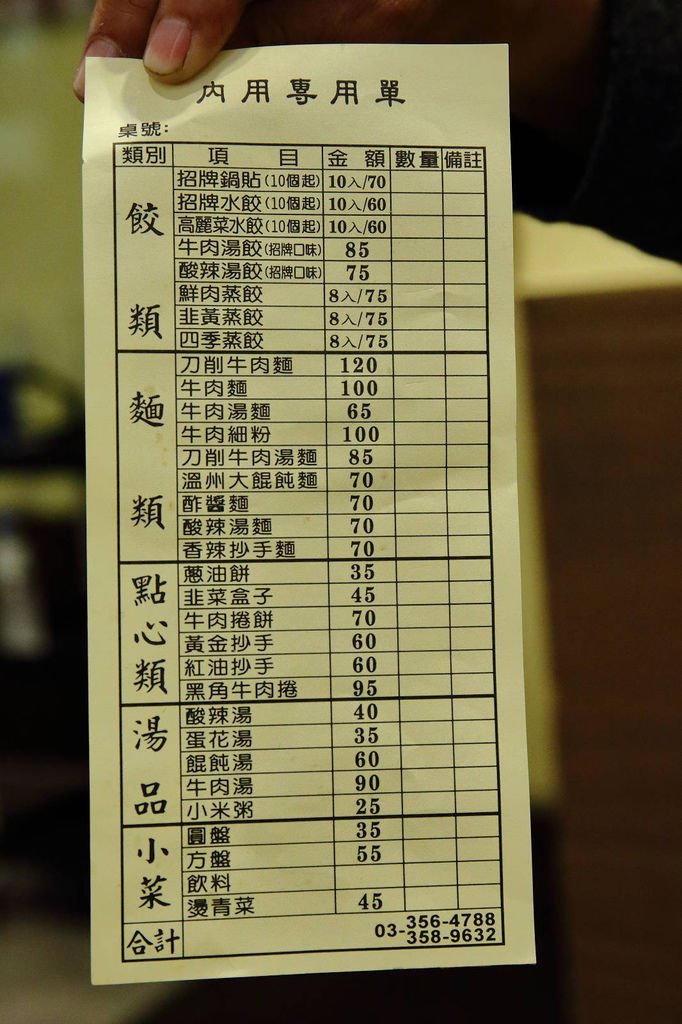 內用專用單
桌號:
類別 項目 金額 數量 備註
餃類
招牌鍋貼(10個起) 10入/70
招牌水餃(10個起) 10入/60
高麗菜水餃(10個起) 10入/60
牛肉湯餃(招牌口味) 85
酸辣湯餃(招牌口味) 75
鮮肉蒸餃 8入/75
韭黃蒸餃 8入/75
四季蒸餃 8入/75
麵類
刀削牛肉麵 120
牛肉麵 100
牛肉湯麵 65
牛肉細粉 100
刀削牛肉湯麵 85
溫州大餛飩麵 70
酢醬麵 70
酸辣湯麵 70
香辣抄手麵 70
點心類
蔥油餅 35
韭菜盒子 45
牛肉捲餅 70
黃金抄手 60
紅油抄手 60
黑角牛肉捲 95
湯品
酸辣湯 40
蛋花湯 35
餛飩湯 60
牛肉湯 90
小米粥 25
小菜
圓盤 35
方盤 55
飲料
燙青菜 45
合計 03-356-4788
358-9632